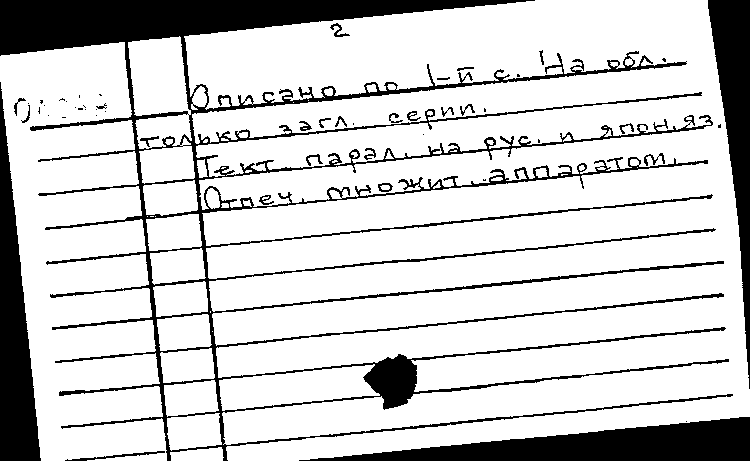 2
Описано по 1-й с. На обл.
только загл. серии.
Текст парал. на рус. и япон. яз.
Отпеч. множит. аппаратом.